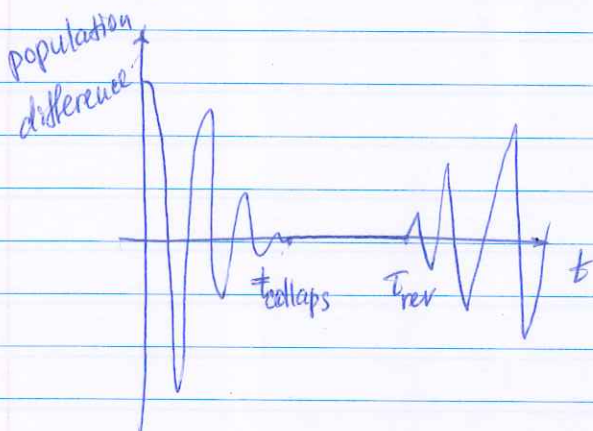 population
difference
t collaps
τrev
t